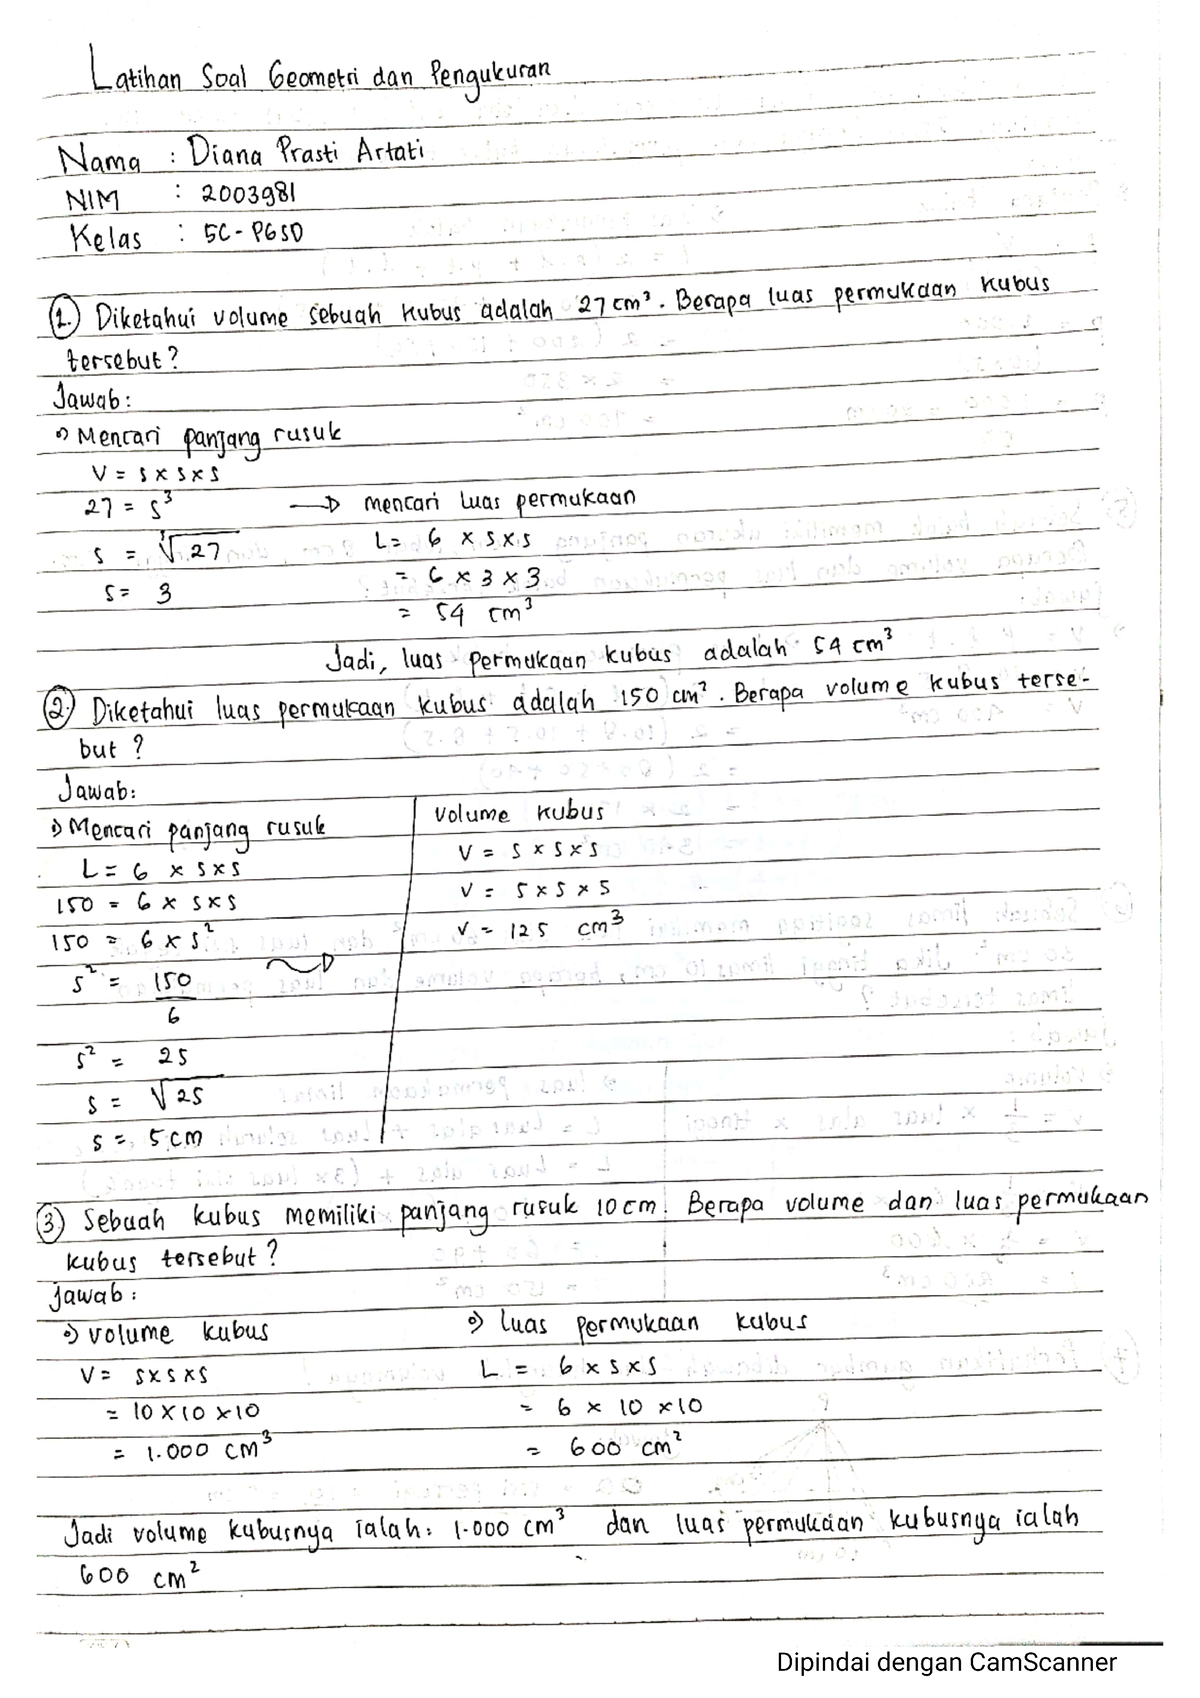 Latihan Soal Geometri dan Pengukuran
Nama : Diana Prasti Artati
NIM : 2003981
Kelas : 5C - PGSD
1. Diketahui volume sebuah kubus adalah 27 cm³. Berapa luas permukaan kubus
tersebut?
Jawab:
Mencari panjang rusuk
V = s x s x s
27 = s³
s = ∛27
s = 3
mencari luas permukaan
L = 6 x s x s
= 6 x 3 x 3
= 54 cm³
Jadi, luas permukaan kubus adalah 54 cm³
2. Diketahui luas permukaan kubus adalah 150 cm². Berapa volume kubus terse-
but ?
Jawab:
Mencari panjang rusuk
L = 6 x s x s
150 = 6 x s x s
150 = 6 x s²
s² = 150
6
s² = 25
s = √25
s = 5 cm
volume kubus
V = s x s x s
V = 5 x 5 x 5
V = 125 cm³
3 Sebuah kubus memiliki panjang rusuk 10 cm. Berapa volume dan luas permukaan
kubus tersebut ?
jawab :
volume kubus
V = s x s x s
= 10 x 10 x 10
= 1.000 cm³
luas permukaan kubus
L = 6 x s x s
= 6 x 10 x 10
= 600 cm²
Jadi volume kubusnya ialah: 1.000 cm³ dan luas permukaan kubusnya ialah
600 cm²
Dipindai dengan CamScanner